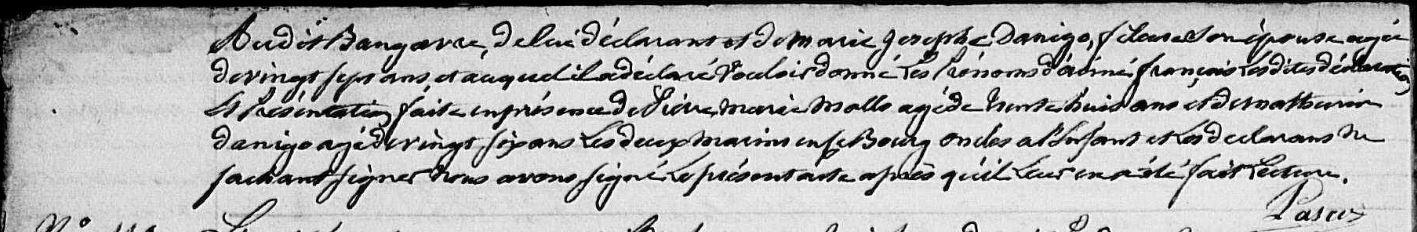 Audit Bangavre, de lui déclarant et de Marie Josephe Danigo, fileuse son épouse agée
de vingt sept ans et auquel il a déclaré vouloir donné les prénoms d'aimé françois lesdites déclaration
et Présentation faite en présence de Pierre Marie Mallo agé de trente huit ans et de mathurin
danigo agé de vingt six ans les deux marins en ce Bourg oncles a l'enfant et les declarans ne
sachant signer nous avons signé le présent acte après qu'il leur en a été fait lecture.
N°